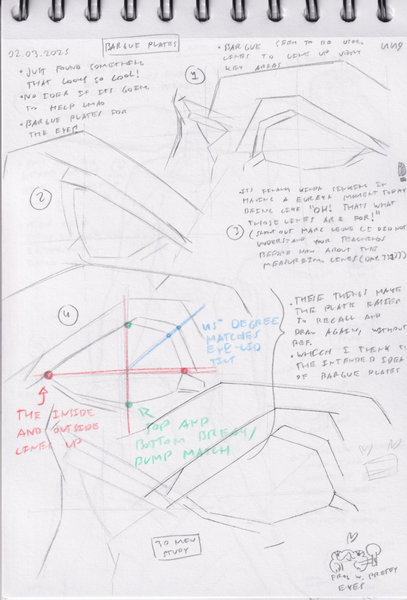 02.03.2025
BARGUE PLATES
• JUST FOUND SOMETHING
THAT LOOKS SO COOL!
• NO IDEA IF ITS GOIN
TO HELP LMAO
• BARGUE PLATES FOR
THE EYES
• BARGUE SEEM TO DO USE
LINES TO LINE UP VERY
KEY AREAS
1
2
ITS REALLY KINDA
HAVING A EUREKA MOMENT TODAY
BEING LIKE "OH! THATS WHAT
THOSE LINES ARE FOR!"
3
(SHOUT OUT MARC LEONE I DID NOT
UNDERSTAND YOUR TEACHINGS
BEFORE NOW ABOUT THIS
MEASURING LINES
4
45° DEGREE
MATCHES
EYE-LID
TILT
• THESE THINGS MAKE
THE PLATE EASIER
TO RECALL AND
DRAW AGAIN, WITHOUT
REF.
• WHICH I THINK IS
THE INTENDED IDEA
OF BARGUE PLATES
THE INSIDE
AND OUTSIDE
LINES UP
TOP AND
BOTTOM
BUMP MATCH
30 MIN
STUDY
W. PRETTY
EYES